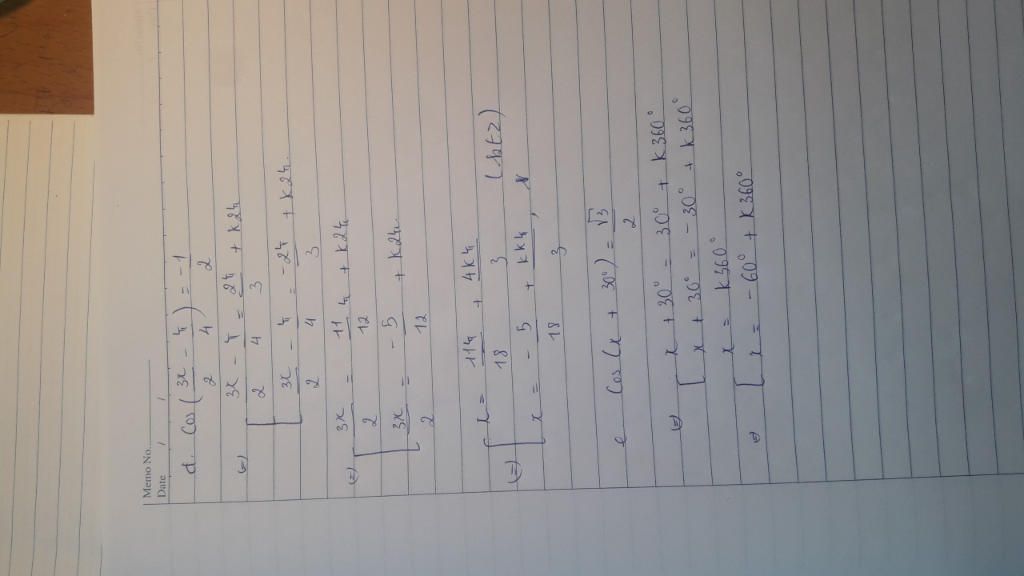 Memo No.
Date / /
d. Cos(3x/2 - π/4) = -1/2
(=) [ 3x/2 - π/4 = 2π/3 + k2π
[ 3x/2 - π/4 = -2π/3 + k2π.
(=) [ 3x/2 = 11/12 π + k2π
[ 3x/2 = -5/12 + k2π.
(=) [ x = 11π/18 + 4kπ/3
[ x = -5/18 + kkπ/3, (k∈Z)
e Cos(x + 30°) = √3/2
(=) [ x + 30° = 30° + k360°
[ x + 30° = -30° + k360°
(=) [ x = k360°
[ x = -60° + k360°